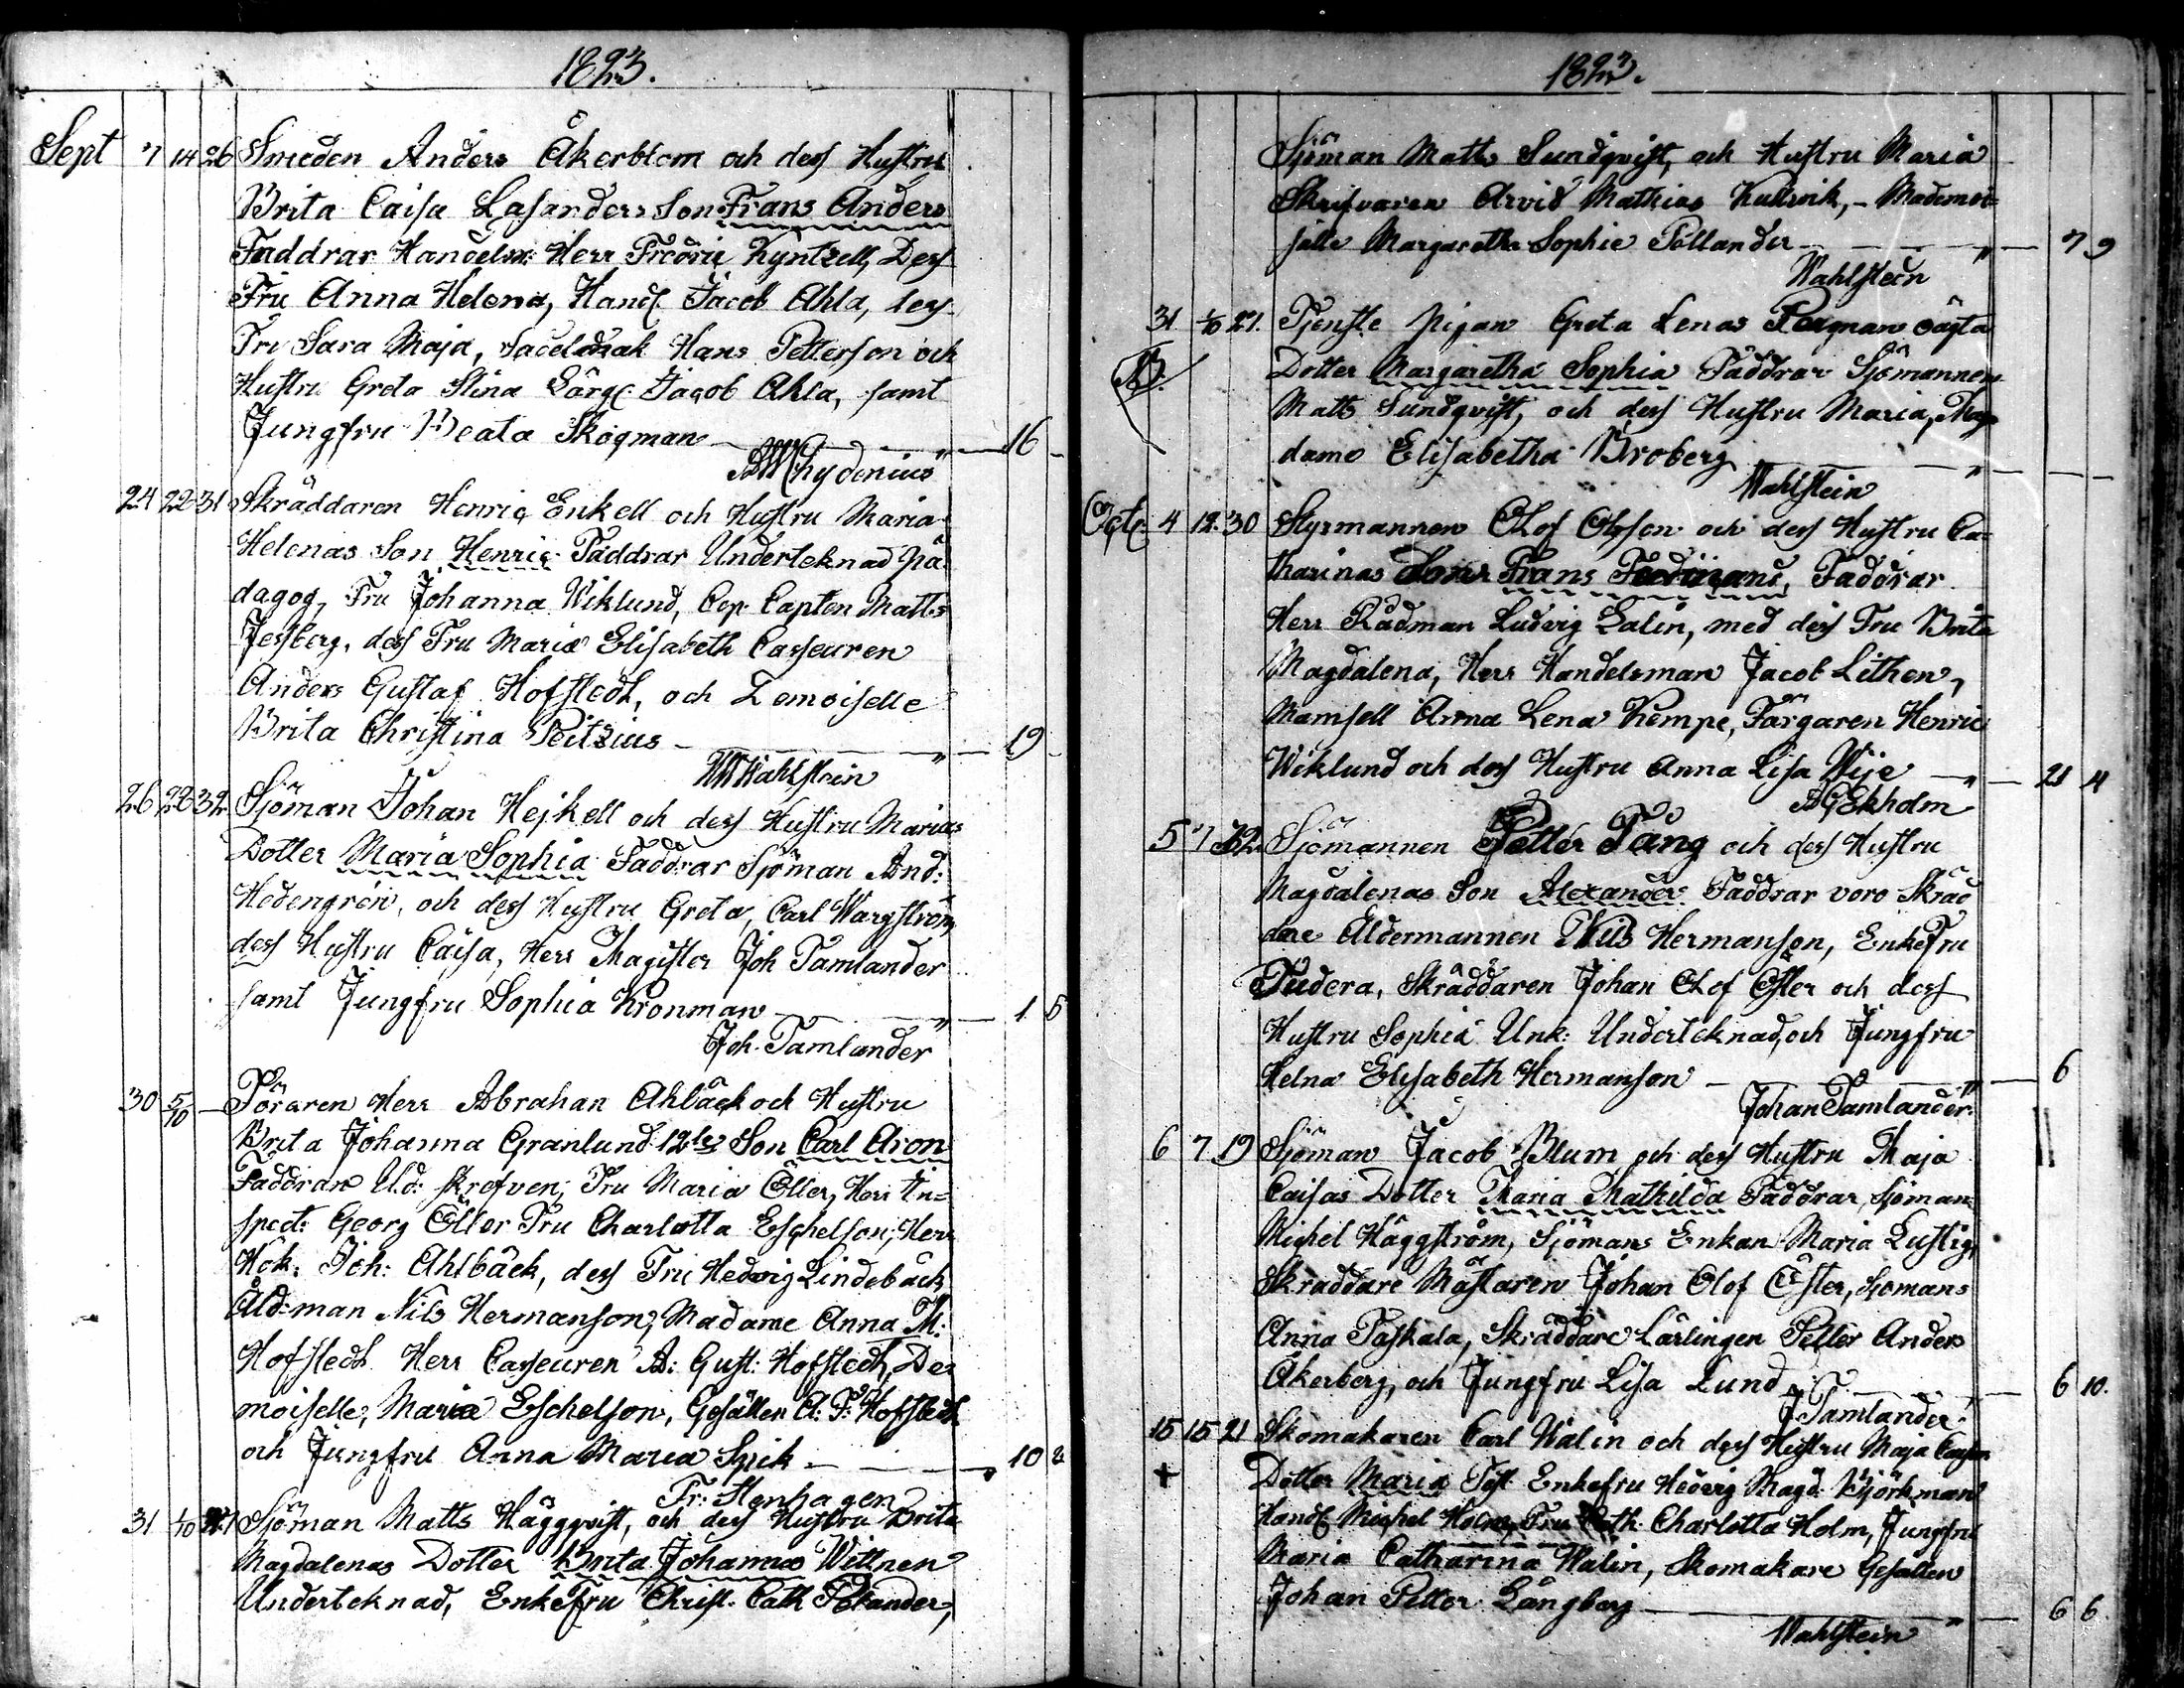 1823.
Sept 7 14 26 Smeden Anders Åkerblom och dess Hustru
Brita Caisa Lasanders Son Frans Anders
Faddrar Handelsm: Herr Fredric Kyntzell, Dess
Fru Anna Helena, Handl Jacob Ahla, dess
Fru Sara Maja, Sadelmak Hans Petterson och
Hustru Greta Stina Färg: Jacob Ahla, samt
Jungfru Beata Skogman — " — 16 -
Chydenius
24 22 31 Skräddaren Henric Enkell och Hustru Maria
Helenas Son Henric Faddrar Undertecknad Pä
dagog, Fru Johanna Wiklund, Cop. Capten Matts
Jesberg, dess Fru Maria Elisabeth Casseuren
Anders Gustaf Hofstedt, och Demoiselle
Brita Christina Peitzius — " — 19 -
Wahlstein
26 28 32 Sjöman Johan Hejkell och dess Hustru Marias
Dotter Maria Sophia Faddrar Sjöman And:
Hedengren, och dess Hustru Greta, Carl Wargström,
dess Hustru Caisa, Herr Magister Joh Tamlander
samt Jungfru Sophia Kronman — " — 1 5
Joh. Tamlander
30 5/10 — Föraren Herr Abraham Ahlbäck och Hustru
Brita Johanna Granlund 12te Son Carl Aron
Faddrar Und: skrefven; Fru Maria Öller, Herr In=
spect: Georg Öller Fru Charlotta Eschelson; Herr
Hök. Joh: Ahlbäck, dess Fru Hedvig Lindebäck,
Åld:man Nils Hermanson, Madame Anna M:
Hofstedt Herr Casseuren A: Gust: Hofstedt, De=
moiselle, Maria Eschelson, Gesällen A: F: Hofstedt
och Jungfru Anna Maria Spik — 10 2
Fr: Stenhagen
31 1/10 27 Sjöman Matts Häggqvist, och dess Hustru Brita
Magdalenas Dotter Brita Johanna Wittnen
Undertecknad, EnkeFru Christ. Cath Polander,
1823.
Sjöman Matts Sundqvist, och Hustru Maria
Skrifvaren Arvid Mathias Kullvik, - Mademoi=
selle Margaretha Sophie Pollander — " — 7 9
Wahlstein
31 1/10 27. Tjenste pigan Greta Lenas Bergman oägta
Dotter Margaretha Sophia Faddrar Sjömannen
Matts Sundqvist, och dess Hustru Maria, Ma=
dame Elisabetha Broberg — " — -
Wahlstein
Octo. 4 12. 30 Styrmannen Olof Olofson och dess Hustru Ca=
tharinas Son Frans Ferdinand, Faddrar
Herr Rådman Ludvig Lalin, med dess Fru Brita
Magdalena, Herr Handelsman Jacob Lithen,
Mamsell Anna Lena Kempe, Färgaren Henric
Wiklund och dess Hustru Anna Lisa Wije — " — 21 4
Ekholm
5 7 32 Sjömannen Petter Tång och dess Hustru
Magdalenas Son Alexander Faddrar voro Skräd
dare Åldermannen Nils Hermanson, EnkeFru
Tudera, Skräddaren Johan Olof Öster och dess
Hustru Sophia Unk: Undertecknad, och Jungfru
Helna Elisabeth Hermanson — " — 6
Johan Tamlander.
6 7 19 Sjöman Jacob Blum och dess Hustru Maja
Caisas Dotter Maria Mathilda Faddrar, Sjöman
Michel Häggström, Sjömans Enkan Maria Lustig,
Skräddare Mästaren Johan Olof Öster, Sjömans
Anna Paskala, Skräddare Lärlingen Petter Anders
Åkerberg, och Jungfru Lisa Lund — 6 10.
J Tamlander.
15 15 21 Skomakaren Carl Walin och dess Hustru Maja Caisas
Dotter Maria Test Enkefru Hedvig Magd. Björkman
Handl Michel Holm, Fru Cath. Charlotta Holm, Jungfru
Maria Catharina Walin, Skomakare Gesällen
Johan Petter Långberg — " — 6 6.
Wahlstein